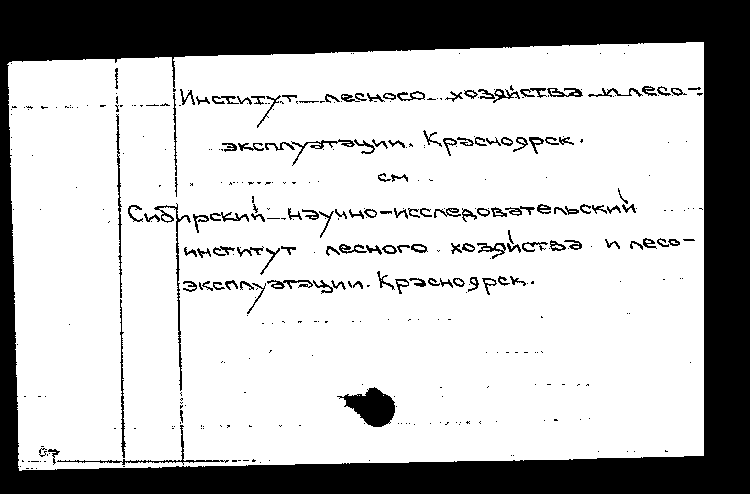 Институт лесного хозяйства и лесо-
эксплуатации. Красноярск.
см
Сибирский научно-исследовательский
институт лесного хозяйства и лесо-
эксплуатации. Красноярск.